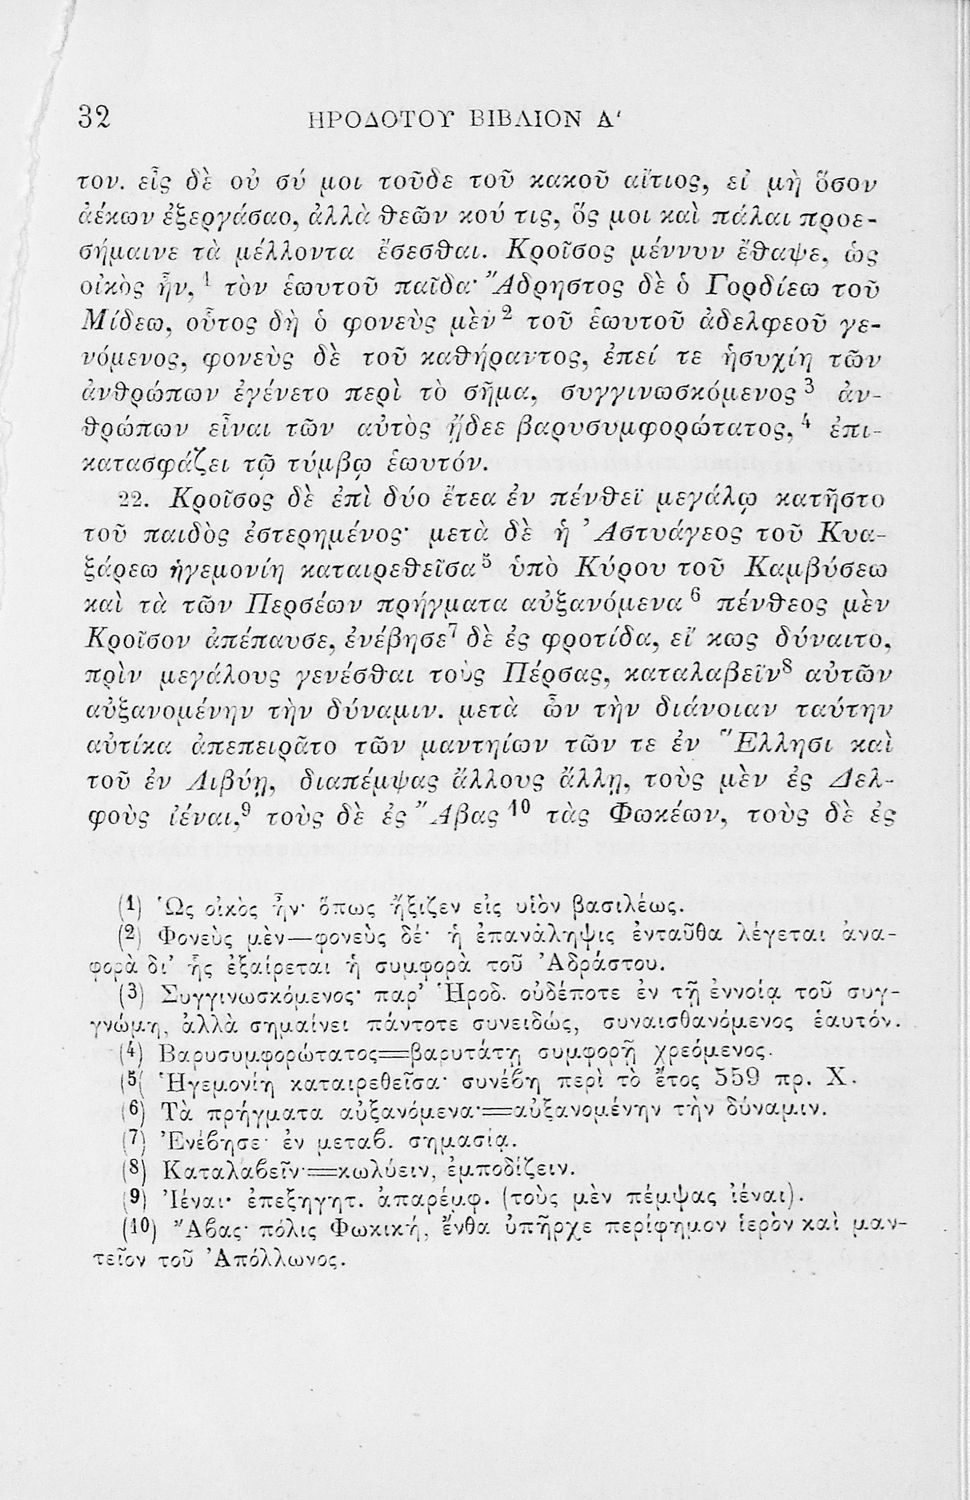 32 ΗΡΟΔΟΤΟΥ ΒΙΒΛΙΟΝ Α'
τον. εἶς δὲ οὐ σύ μοι τοῦδε τοῦ κακοῦ αἴτιος, εἰ μὴ ὅσον
ἀέκων ἐξεργάσαο, ἀλλὰ θεῶν κού τις, ὅς μοι καὶ πάλαι προε-
σήμαινε τὰ μέλλοντα ἔσεσθαι. Κροῖσος μέννυν ἔθαψε, ὡς
οἰκὸς ἦν,¹ τὸν ἑωυτοῦ παῖδα· Ἄδρηστος δὲ ὁ Γορδίεω τοῦ
Μίδεω, οὗτος δὴ ὁ φονεὺς μὲν² τοῦ ἑωυτοῦ ἀδελφεοῦ γε-
νόμενος, φονεὺς δὲ τοῦ καθήραντος, ἐπεί τε ἡσυχίη τῶν
ἀνθρώπων ἐγένετο περὶ τὸ σῆμα, συγγινωσκόμενος³ ἀν-
θρώπων εἶναι τῶν αὐτὸς ᾔδεε βαρυσυμφορώτατος,⁴ ἐπι-
κατασφάζει τῷ τύμβῳ ἑωυτόν.
22. Κροῖσος δὲ ἐπὶ δύο ἔτεα ἐν πένθεϊ μεγάλῳ κατῆστο
τοῦ παιδὸς ἐστερημένος· μετὰ δὲ ἡ Ἀστυάγεος τοῦ Κυα-
ξάρεω ἡγεμονίη καταιρεθεῖσα⁵ ὑπὸ Κύρου τοῦ Καμβύσεω
καὶ τὰ τῶν Περσέων πρήγματα αὐξανόμενα⁶ πένθεος μὲν
Κροῖσον ἀπέπαυσε, ἐνέβησε⁷ δὲ ἐς φροτίδα, εἴ κως δύναιτο,
πρὶν μεγάλους γενέσθαι τοὺς Πέρσας, καταλαβεῖν⁸ αὐτῶν
αὐξανομένην τὴν δύναμιν. μετὰ ὦν τὴν διάνοιαν ταύτην
αὐτίκα ἀπεπειρᾶτο τῶν μαντηίων τῶν τε ἐν Ἕλλησι καὶ
τοῦ ἐν Λιβύῃ, διαπέμψας ἄλλους ἄλλῃ, τοὺς μὲν ἐς Δελ-
φοὺς ἰέναι,⁹ τοὺς δὲ ἐς Ἄβας¹⁰ τὰς Φωκέων, τοὺς δὲ ἐς
(1) Ὡς οἰκὸς ἦν· ὅπως ἤξιζεν εἰς υἱὸν βασιλέως.
(2) Φονεὺς μὲν—φονεὺς δέ· ἡ ἐπανάληψις ἐνταῦθα λέγεται ἀνα-
φορὰ δι' ἧς ἐξαίρεται ἡ συμφορὰ τοῦ Ἀδράστου.
(3) Συγγινωσκόμενος· παρ' Ἡροδ. οὐδέποτε ἐν τῇ ἐννοίᾳ τοῦ συγ-
γνώμη, ἀλλὰ σημαίνει πάντοτε συνειδώς, συναισθανόμενος ἑαυτόν.
(4) Βαρυσυμφορώτατος=βαρυτάτῃ συμφορῇ χρεόμενος.
(5( Ἡγεμονίη καταιρεθεῖσα· συνέβη περὶ τὸ ἔτος 559 πρ. Χ.
(6) Τὰ πρήγματα αὐξανόμενα·=αὐξανομένην τὴν δύναμιν.
(7) Ἐνέβησε· ἐν μεταβ. σημασίᾳ.
(8) Καταλαβεῖν·=κωλύειν, ἐμποδίζειν.
(9) Ἰέναι· ἐπεξηγητ. ἀπαρέμφ. (τοὺς μὲν πέμψας ἰέναι).
(10) Ἄβας· πόλις Φωκική, ἔνθα ὑπῆρχε περίφημον ἱερὸν καὶ μαν-
τεῖον τοῦ Ἀπόλλωνος.